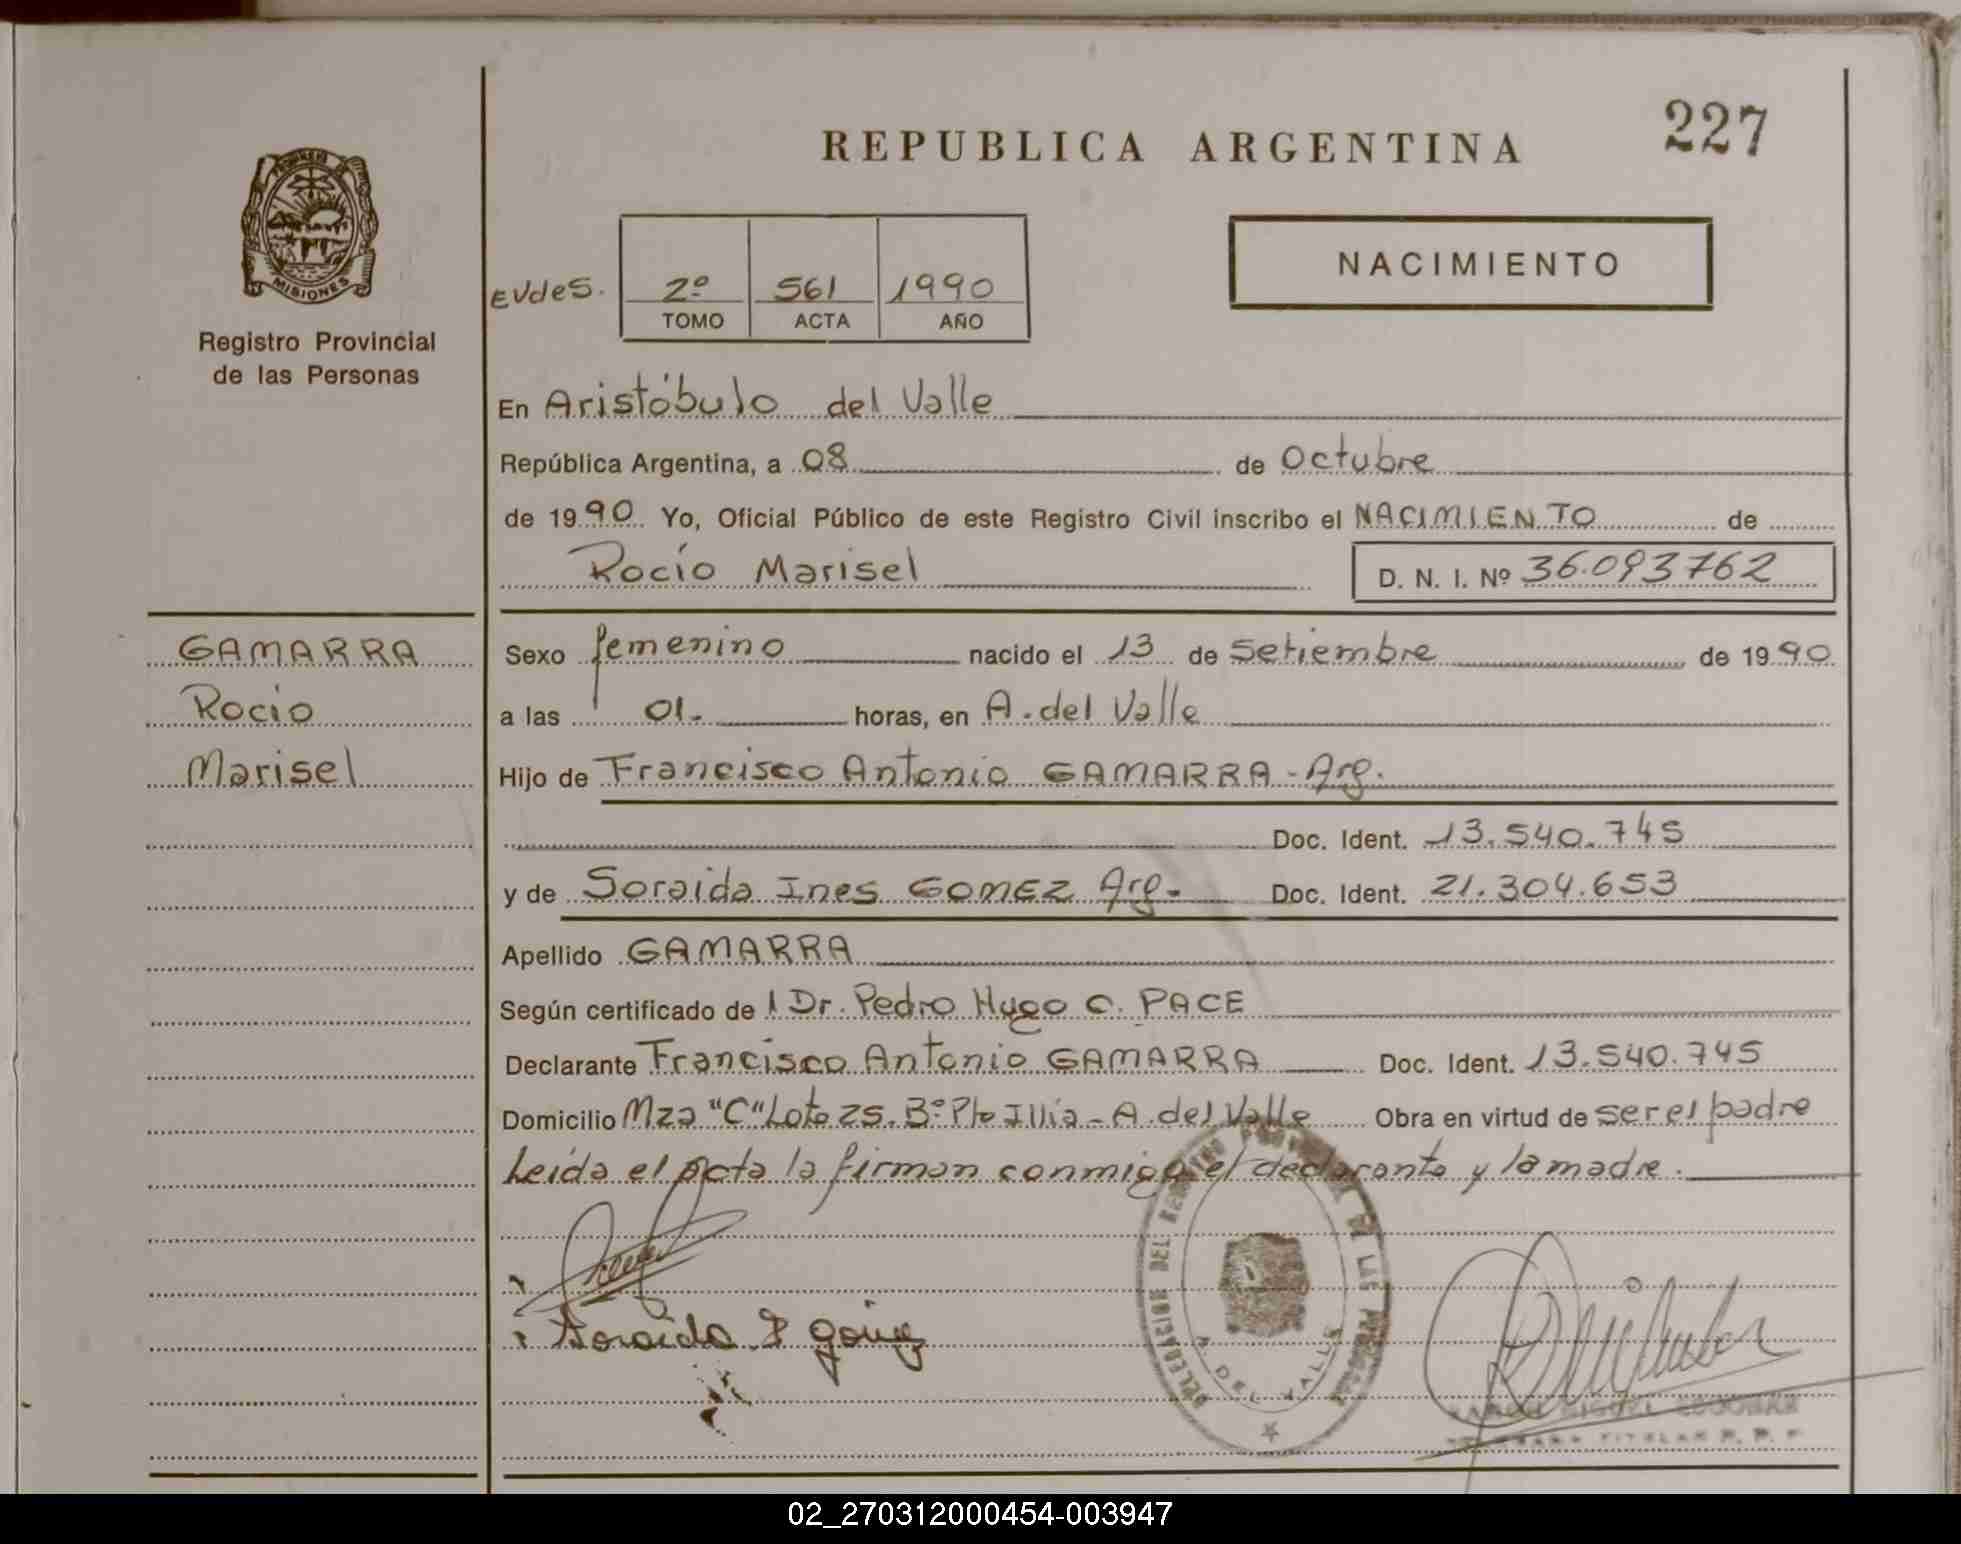 REPUBLICA ARGENTINA
227
PROVINCIA DE
MISIONES
Registro Provincial
de las Personas
EVdeS.
2º 561 1990
TOMO ACTA AÑO
NACIMIENTO
En Aristóbulo del Valle
República Argentina, a 08 de Octubre
de 1990 Yo, Oficial Público de este Registro Civil inscribo el NACIMIENTO de
Rocío Marisel D. N. I. Nº 36.093762
GAMARRA
Rocio
Marisel
Sexo femenino nacido el 13 de Setiembre de 1990
a las 01. horas, en A. del Valle
Hijo de Francisco Antonio GAMARRA - Arg.
Doc. Ident. 13.540.745
y de Soraida Ines GOMEZ Arg. Doc. Ident. 21.304.653
Apellido GAMARRA
Según certificado de l Dr. Pedro Hugo C. PACE
Declarante Francisco Antonio GAMARRA Doc. Ident. 13.540.745
Domicilio Mza "C" Lote 25. Bº Pte Illia - A. del Valle Obra en virtud de ser el padre
Leída el acta la firman conmigo el declarante y la madre.
DELEGACION DEL REGISTRO PROVINCIAL DE LAS PERSONAS
A. DEL VALLE
Soraida I
RAMON MIGUEL ESCOBAR
TITULAR R. P. P.
02_270312000454-003947